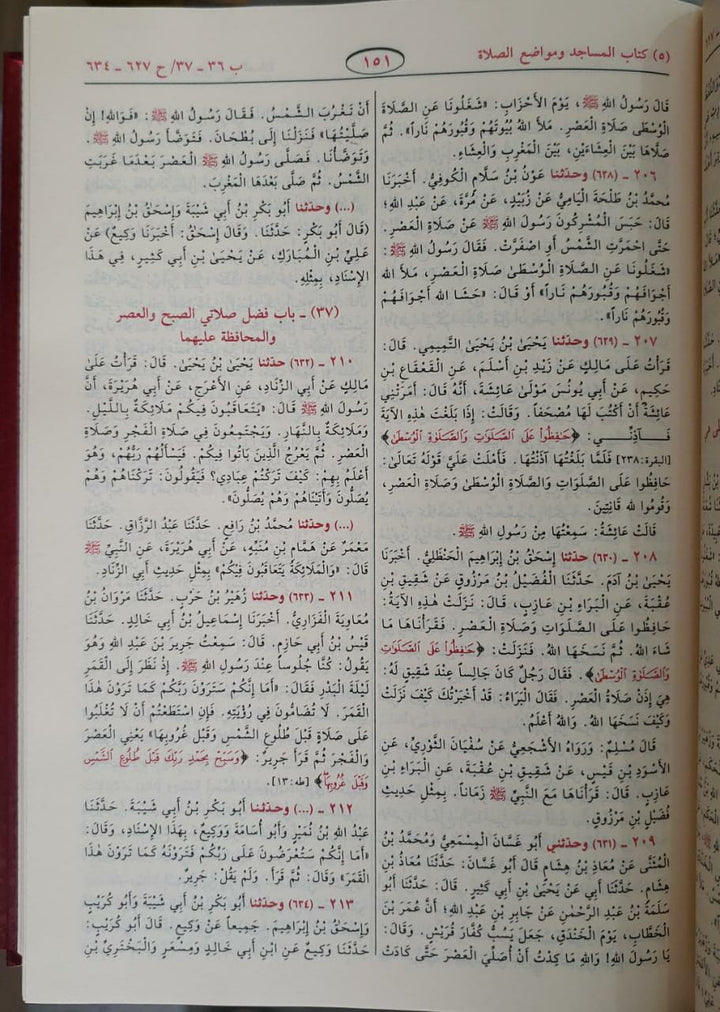 (٥) كتاب المساجد ومواضع الصلاة
١٥١
ب ٣٦ ـ ٣٧/ ح ٦٢٧ ـ ٦٣٤
قَالَ رَسُولُ اللهِ ﷺ، يَوْمَ الأَحْزَابِ: «شَغَلُونَا عَنِ الصَّلَاةِ
الْوُسْطَى صَلَاةِ الْعَصْرِ. مَلأَ اللهُ بُيُوتَهُمْ وَقُبُورَهُمْ نَاراً». ثُمَّ
صَلَّاهَا بَيْنَ الْعِشَاءَيْنِ، بَيْنَ الْمَغْرِبِ وَالْعِشَاءِ.
٢٠٦ ـ (٦٢٨) وحدّثنا عَوْنُ بْنُ سَلَّامٍ الْكُوفِيُّ. أَخْبَرَنَا
مُحَمَّدُ بْنُ طَلْحَةَ الْيَامِيُّ عَنْ زُبَيْدٍ، عَنْ مُرَّةَ، عَنْ عَبْدِ اللهِ؛
قَالَ: حَبَسَ الْمُشْرِكُونَ رَسُولَ اللهِ ﷺ عَنْ صَلَاةِ الْعَصْرِ.
حَتَّى احْمَرَّتِ الشَّمْسُ أَوِ اصْفَرَّتْ. فَقَالَ رَسُولُ اللهِ ﷺ:
«شَغَلُونَا عَنِ الصَّلَاةِ الْوُسْطَى صَلَاةِ الْعَصْرِ، مَلأَ اللهُ
أَجْوَافَهُمْ وَقُبُورَهُمْ نَاراً» أَوْ قَالَ: «حَشَا اللهُ أَجْوَافَهُمْ
وَقُبُورَهُمْ نَاراً».
٢٠٧ ـ (٦٢٩) وحدّثنا يَحْيَىٰ بْنُ يَحْيَىٰ التَّمِيمِي. قَالَ:
قَرَأْتُ عَلَى مَالِكٍ عَنْ زَيْدِ بْنِ أَسْلَمَ، عَنِ الْقَعْقَاعِ بْنِ
حَكِيمٍ، عَنْ أَبِي يُونُسَ مَوْلَىٰ عَائِشَةَ، أَنَّهُ قَالَ: أَمَرَتْنِي
عَائِشَةُ أَنْ أَكْتُبَ لَهَا مُصْحَفاً. وَقَالَتْ: إِذَا بَلَغْتَ هٰذِهِ الآيَةَ
فَـآذِنِّـي: ﴿حَٰفِظُوا۟ عَلَى ٱلصَّلَوَٰتِ وَٱلصَّلَوٰةِ ٱلْوُسْطَىٰ﴾
[البقرة:٢٣٨] فَلَمَّا بَلَغْتُهَا آذَنْتُهَا. فَأَمْلَتْ عَلَيَّ قَوْلَهُ تَعَالَىٰ:
حَافِظُوا عَلَى الصَّلَوَاتِ وَالصَّلَاةِ الْوُسْطَىٰ وَصَلَاةِ الْعَصْرِ،
وَقُومُوا لله قَانِتِينَ.
قَالَتْ عَائِشَةُ: سَمِعْتُهَا مِنْ رَسُولِ اللهِ ﷺ.
٢٠٨ ـ (٦٣٠) حدّثنا إِسْحَٰقُ بْنُ إِبْرَاهِيمَ الْحَنْظَلِيُّ. أَخْبَرَنَا
يَحْيَىٰ بْنُ آدَمَ. حَدَّثَنَا الْفُضَيْلُ بْنُ مَرْزُوقٍ عَنْ شَقِيقِ بْنِ
عُقْبَةَ، عَنِ الْبَرَاءِ بْنِ عَازِبٍ، قَالَ: نَزَلَتْ هٰذِهِ الآيَةُ:
حَافِظُوا عَلَى الصَّلَوَاتِ وَصَلَاةِ الْعَصْرِ. فَقَرَأْنَاهَا مَا
شَاءَ اللهُ. ثُمَّ نَسَخَهَا اللهُ. فَنَزَلَتْ: ﴿حَٰفِظُوا۟ عَلَى ٱلصَّلَوَٰتِ
وَٱلصَّلَوٰةِ ٱلْوُسْطَىٰ﴾. فَقَالَ رَجُلٌ كَانَ جَالِساً عِنْدَ شَقِيقٍ لَهُ:
هِيَ إِذَنْ صَلَاةُ الْعَصْرِ. فَقَالَ الْبَرَاءُ: قَدْ أَخْبَرْتُكَ كَيْفَ نَزَلَتْ
وَكَيْفَ نَسَخَهَا اللهُ. وَاللهُ أَعْلَمُ.
قَالَ مُسْلِمٌ: وَرَوَاهُ الأَشْجَعِيُّ عَنْ سُفْيَانَ الثَّوْرِيِّ، عَنِ
الأَسْوَدِ بْنِ قَيْسٍ، عَنْ شَقِيقِ بْنِ عُقْبَةَ، عَنِ الْبَرَاءِ بْنِ
عَازِبٍ. قَالَ: قَرَأْنَاهَا مَعَ النَّبِيِّ ﷺ زَمَاناً. بِمِثْلِ حَدِيثِ
فُضَيْلِ بْنِ مَرْزُوقٍ.
٢٠٩ ـ (٦٣١) وحدّثني أَبُو غَسَّانَ الْمِسْمَعِيُّ وَمُحَمَّدُ بْنُ
الْمُثَنَّى عَنْ مُعَاذِ بْنِ هِشَامٍ قَالَ أَبُو غَسَّانَ: حَدَّثَنَا مُعَاذُ بْنُ
هِشَامٍ. حَدَّثَنِي أَبِي عَنْ يَحْيَىٰ بْنِ أَبِي كَثِيرٍ. قَالَ: حَدَّثَنَا أَبُو
سَلَمَةَ بْنُ عَبْدِ الرَّحْمٰنِ عَنْ جَابِرِ بْنِ عَبْدِ اللهِ؛ أَنَّ عُمَرَ بْنَ
الْخَطَّابِ، يَوْمَ الْخَنْدَقِ، جَعَلَ يَسُبُّ كُفَّارَ قُرَيْشٍ. وَقَالَ:
يَا رَسُولَ اللهِ! وَاللهِ مَا كِدْتُ أَنْ أُصَلِّيَ الْعَصْرَ حَتَّى كَادَتْ
أَنْ تَغْرُبَ الشَّمْسُ. فَقَالَ رَسُولُ اللهِ ﷺ: «فَوَاللهِ! إِنْ
صَلَّيْتُهَا» فَنَزَلْنَا إِلَى بُطْحَانَ. فَتَوَضَّأَ رَسُولُ اللهِ ﷺ.
وَتَوَضَّأْنَا. فَصَلَّى رَسُولُ اللهِ ﷺ الْعَصْرَ بَعْدَمَا غَرَبَتِ
الشَّمْسُ. ثُمَّ صَلَّى بَعْدَهَا الْمَغْرِبَ.
(...) وحدّثنا أَبُو بَكْرِ بْنُ أَبِي شَيْبَةَ وَإِسْحَٰقُ بْنُ إِبْرَاهِيمَ
(قَالَ أَبُو بَكْرٍ: حَدَّثَنَا. وَقَالَ إِسْحَٰقُ: أَخْبَرَنَا وَكِيعٌ) عَنْ
عَلِيِّ بْنِ الْمُبَارَكِ، عَنْ يَحْيَىٰ بْنِ أَبِي كَثِيرٍ، فِي هٰذَا
الإِسْنَادِ، بِمِثْلِهِ.
(٣٧) ـ باب فضل صلاتي الصبح والعصر
والمحافظة عليهما
٢١٠ ـ (٦٣٢) حدّثنا يَحْيَىٰ بْنُ يَحْيَىٰ. قَالَ: قَرَأْتُ عَلَىٰ
مَالِكٍ عَنْ أَبِي الزِّنَادِ، عَنِ الأَعْرَجِ، عَنْ أَبِي هُرَيْرَةَ، أَنَّ
رَسُولَ اللهِ ﷺ قَالَ: «يَتَعَاقَبُونَ فِيكُمْ مَلَائِكَةٌ بِاللَّيْلِ.
وَمَلَائِكَةٌ بِالنَّهَارِ. وَيَجْتَمِعُونَ فِي صَلَاةِ الْفَجْرِ وَصَلَاةِ
الْعَصْرِ. ثُمَّ يَعْرُجُ الَّذِينَ بَاتُوا فِيكُمْ. فَيَسْأَلُهُمْ رَبُّهُمْ، وَهُوَ
أَعْلَمُ بِهِمْ: كَيْفَ تَرَكْتُمْ عِبَادِي؟ فَيَقُولُونَ: تَرَكْنَاهُمْ وَهُمْ
يُصَلُّونَ وَأَتَيْنَاهُمْ وَهُمْ يُصَلُّونَ».
(...) وحدّثنا مُحَمَّدُ بْنُ رَافِعٍ. حَدَّثَنَا عَبْدُ الرَّزَّاقِ. حَدَّثَنَا
مَعْمَرٌ عَنْ هَمَّامِ بْنِ مُنَبِّهٍ، عَنْ أَبِي هُرَيْرَةَ، عَنِ النَّبِيِّ ﷺ
قَالَ: «وَالْمَلَائِكَةُ يَتَعَاقَبُونَ فِيكُمْ» بِمِثْلِ حَدِيثِ أَبِي الزِّنَادِ.
٢١١ ـ (٦٣٣) وحدّثنا زُهَيْرُ بْنُ حَرْبٍ. حَدَّثَنَا مَرْوَانُ بْنُ
مُعَاوِيَةَ الْفَزَارِيُّ. أَخْبَرَنَا إِسْمَاعِيلُ بْنُ أَبِي خَالِدٍ. حَدَّثَنَا
قَيْسُ بْنُ أَبِي حَازِمٍ. قَالَ: سَمِعْتُ جَرِيرَ بْنَ عَبْدِ اللهِ وَهُوَ
يَقُولُ: كُنَّا جُلُوساً عِنْدَ رَسُولِ اللهِ ﷺ. إِذْ نَظَرَ إِلَى الْقَمَرِ
لَيْلَةَ الْبَدْرِ فَقَالَ: «أَمَا إِنَّكُمْ سَتَرَوْنَ رَبَّكُمْ كَمَا تَرَوْنَ هٰذَا
الْقَمَرَ. لَا تُضَامُّونَ فِي رُؤْيَتِهِ. فَإِنِ اسْتَطَعْتُمْ أَنْ لَا تُغْلَبُوا
عَلَى صَلَاةٍ قَبْلَ طُلُوعِ الشَّمْسِ وَقَبْلَ غُرُوبِهَا» يَعْنِي الْعَصْرَ
وَالْفَجْرَ ثُمَّ قَرَأَ جَرِيرٌ: ﴿وَسَبِّحْ بِحَمْدِ رَبِّكَ قَبْلَ طُلُوعِ ٱلشَّمْسِ
وَقَبْلَ غُرُوبِهَا﴾ [طه:١٣].
٢١٢ ـ (...) وحدّثنا أَبُو بَكْرِ بْنُ أَبِي شَيْبَةَ. حَدَّثَنَا
عَبْدُ اللهِ بْنُ نُمَيْرٍ وَأَبُو أُسَامَةَ وَوَكِيعٌ، بِهٰذَا الإِسْنَادِ، وَقَالَ:
«أَمَا إِنَّكُمْ سَتُعْرَضُونَ عَلَى رَبِّكُمْ فَتَرَوْنَهُ كَمَا تَرَوْنَ هٰذَا
الْقَمَرَ» وَقَالَ: ثُمَّ قَرَأَ. وَلَمْ يَقُلْ: جَرِيرٌ.
٢١٣ ـ (٦٣٤) وحدّثنا أَبُو بَكْرِ بْنُ أَبِي شَيْبَةَ وَأَبُو كُرَيْبٍ
وَإِسْحَٰقُ بْنُ إِبْرَاهِيمَ. جَمِيعاً عَنْ وَكِيعٍ. قَالَ أَبُو كُرَيْبٍ:
حَدَّثَنَا وَكِيعٌ عَنِ ابْنِ أَبِي خَالِدٍ وَمِسْعَرٍ وَالْبَخْتَرِيِّ بْنِ